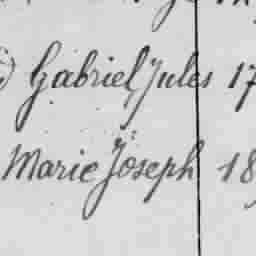 Gabriel Jules 17
Marie Joseph 18